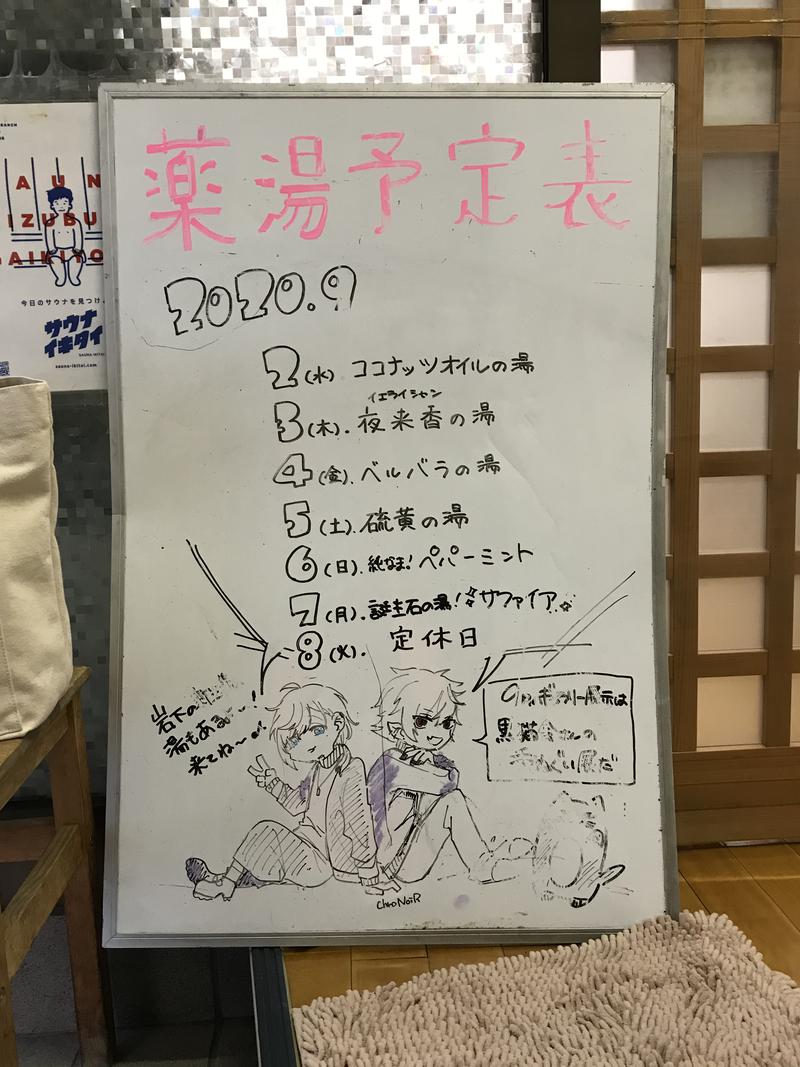 薬湯予定表
2020.9
2(水) ココナッツオイルの湯
イエライシャン
3(木). 夜来香の湯
4(金). ベルバラの湯
5(土). 硫黄の湯
6(日). 純なま! ペパーミント
7(月). 誕生石の湯! サファイア
8(火). 定休日
岩下の
湯もある
来てね〜
展示は
黒猫
ぬぐい展だ
ChroNoiR
AUN
IZUBU
AIKIYO
今日のサウナを見つけ
サウナ
イキタイ
sauna-ikitai.com